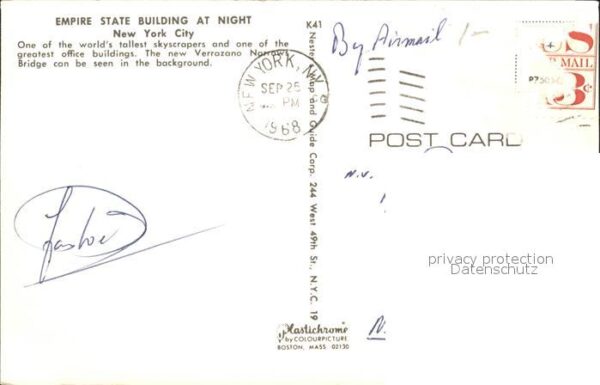 EMPIRE STATE BUILDING AT NIGHT
New York City
One of the world's tallest skyscrapers and one of the
greatest office buildings. The new Verrozano Narrows
Bridge can be seen in the background.
K41
Map and Guide Corp. 244 West 49th St., N.Y.C. 19
NEW YORK, N.Y.
SEP 25
PM
1968
By Airmail
US
MAIL
POST CARD
N.V.
!
privacy protection
Datenschutz
N.
Plastichrome
by COLOURPICTURE
BOSTON, MASS 02130